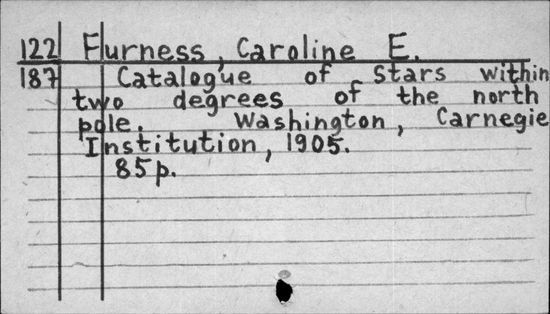 122 Furness, Caroline E.
187 Catalogue of Stars within
two degrees of the north
pole. Washington, Carnegie
Institution, 1905.
85p.